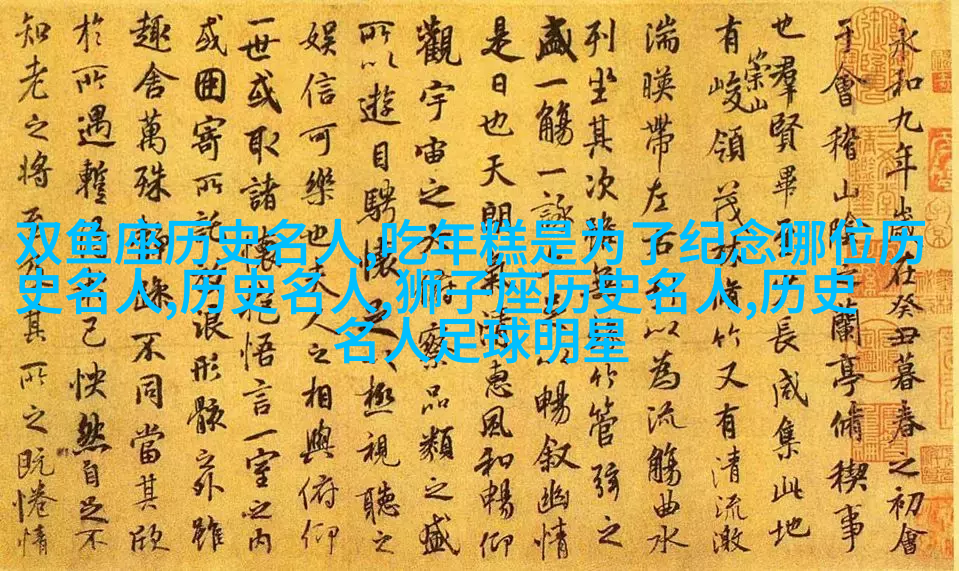 双鱼座历史名人,吃年糕是为了纪念哪位历
史名人,历史名人,狮子座历史名人,历史
名人足球明星
永和九年歲在癸丑暮春之初會
于會稽山陰之蘭亭脩稧事
也羣賢畢至少長咸集此地
有崇山峻領茂林脩竹又有清流激
湍暎帶左右引以為流觴曲水
列坐其次雖無絲竹管弦之
盛一觴一詠亦足以暢叙幽情
是日也天朗氣清惠風和暢仰
觀宇宙之大俯察品類之盛
所以遊目騁懷足以極視聽之
娛信可樂也夫人之相與俯仰
一世或取諸懷抱悟言一室之內
或因寄所託放浪形骸之外雖
趣舍萬殊靜躁不同當其欣
於所遇蹔得於己怏然自足不
知老之將至及其所之既惓情